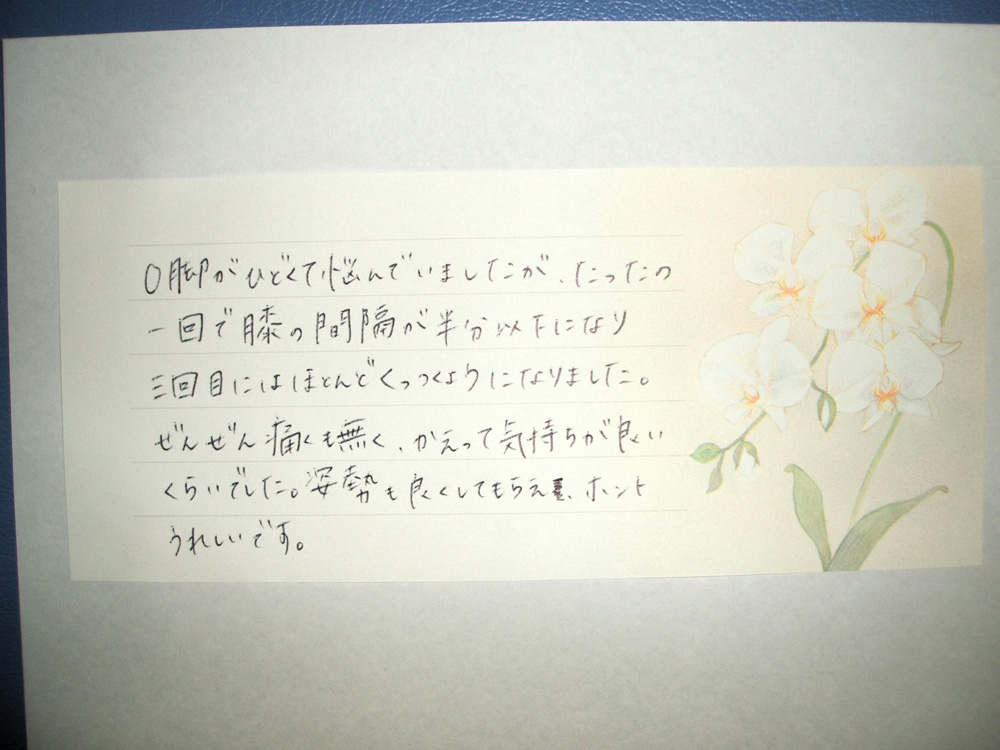 O脚がひどくて悩んでいましたが、たったの
一回で膝の間隔が半分以下になり
三回目にはほとんどくっつくようになりました。
ぜんぜん痛くも無く、かえって気持ちが良い
くらいでした。姿勢も良くしてもらえ、ホント
うれしいです。